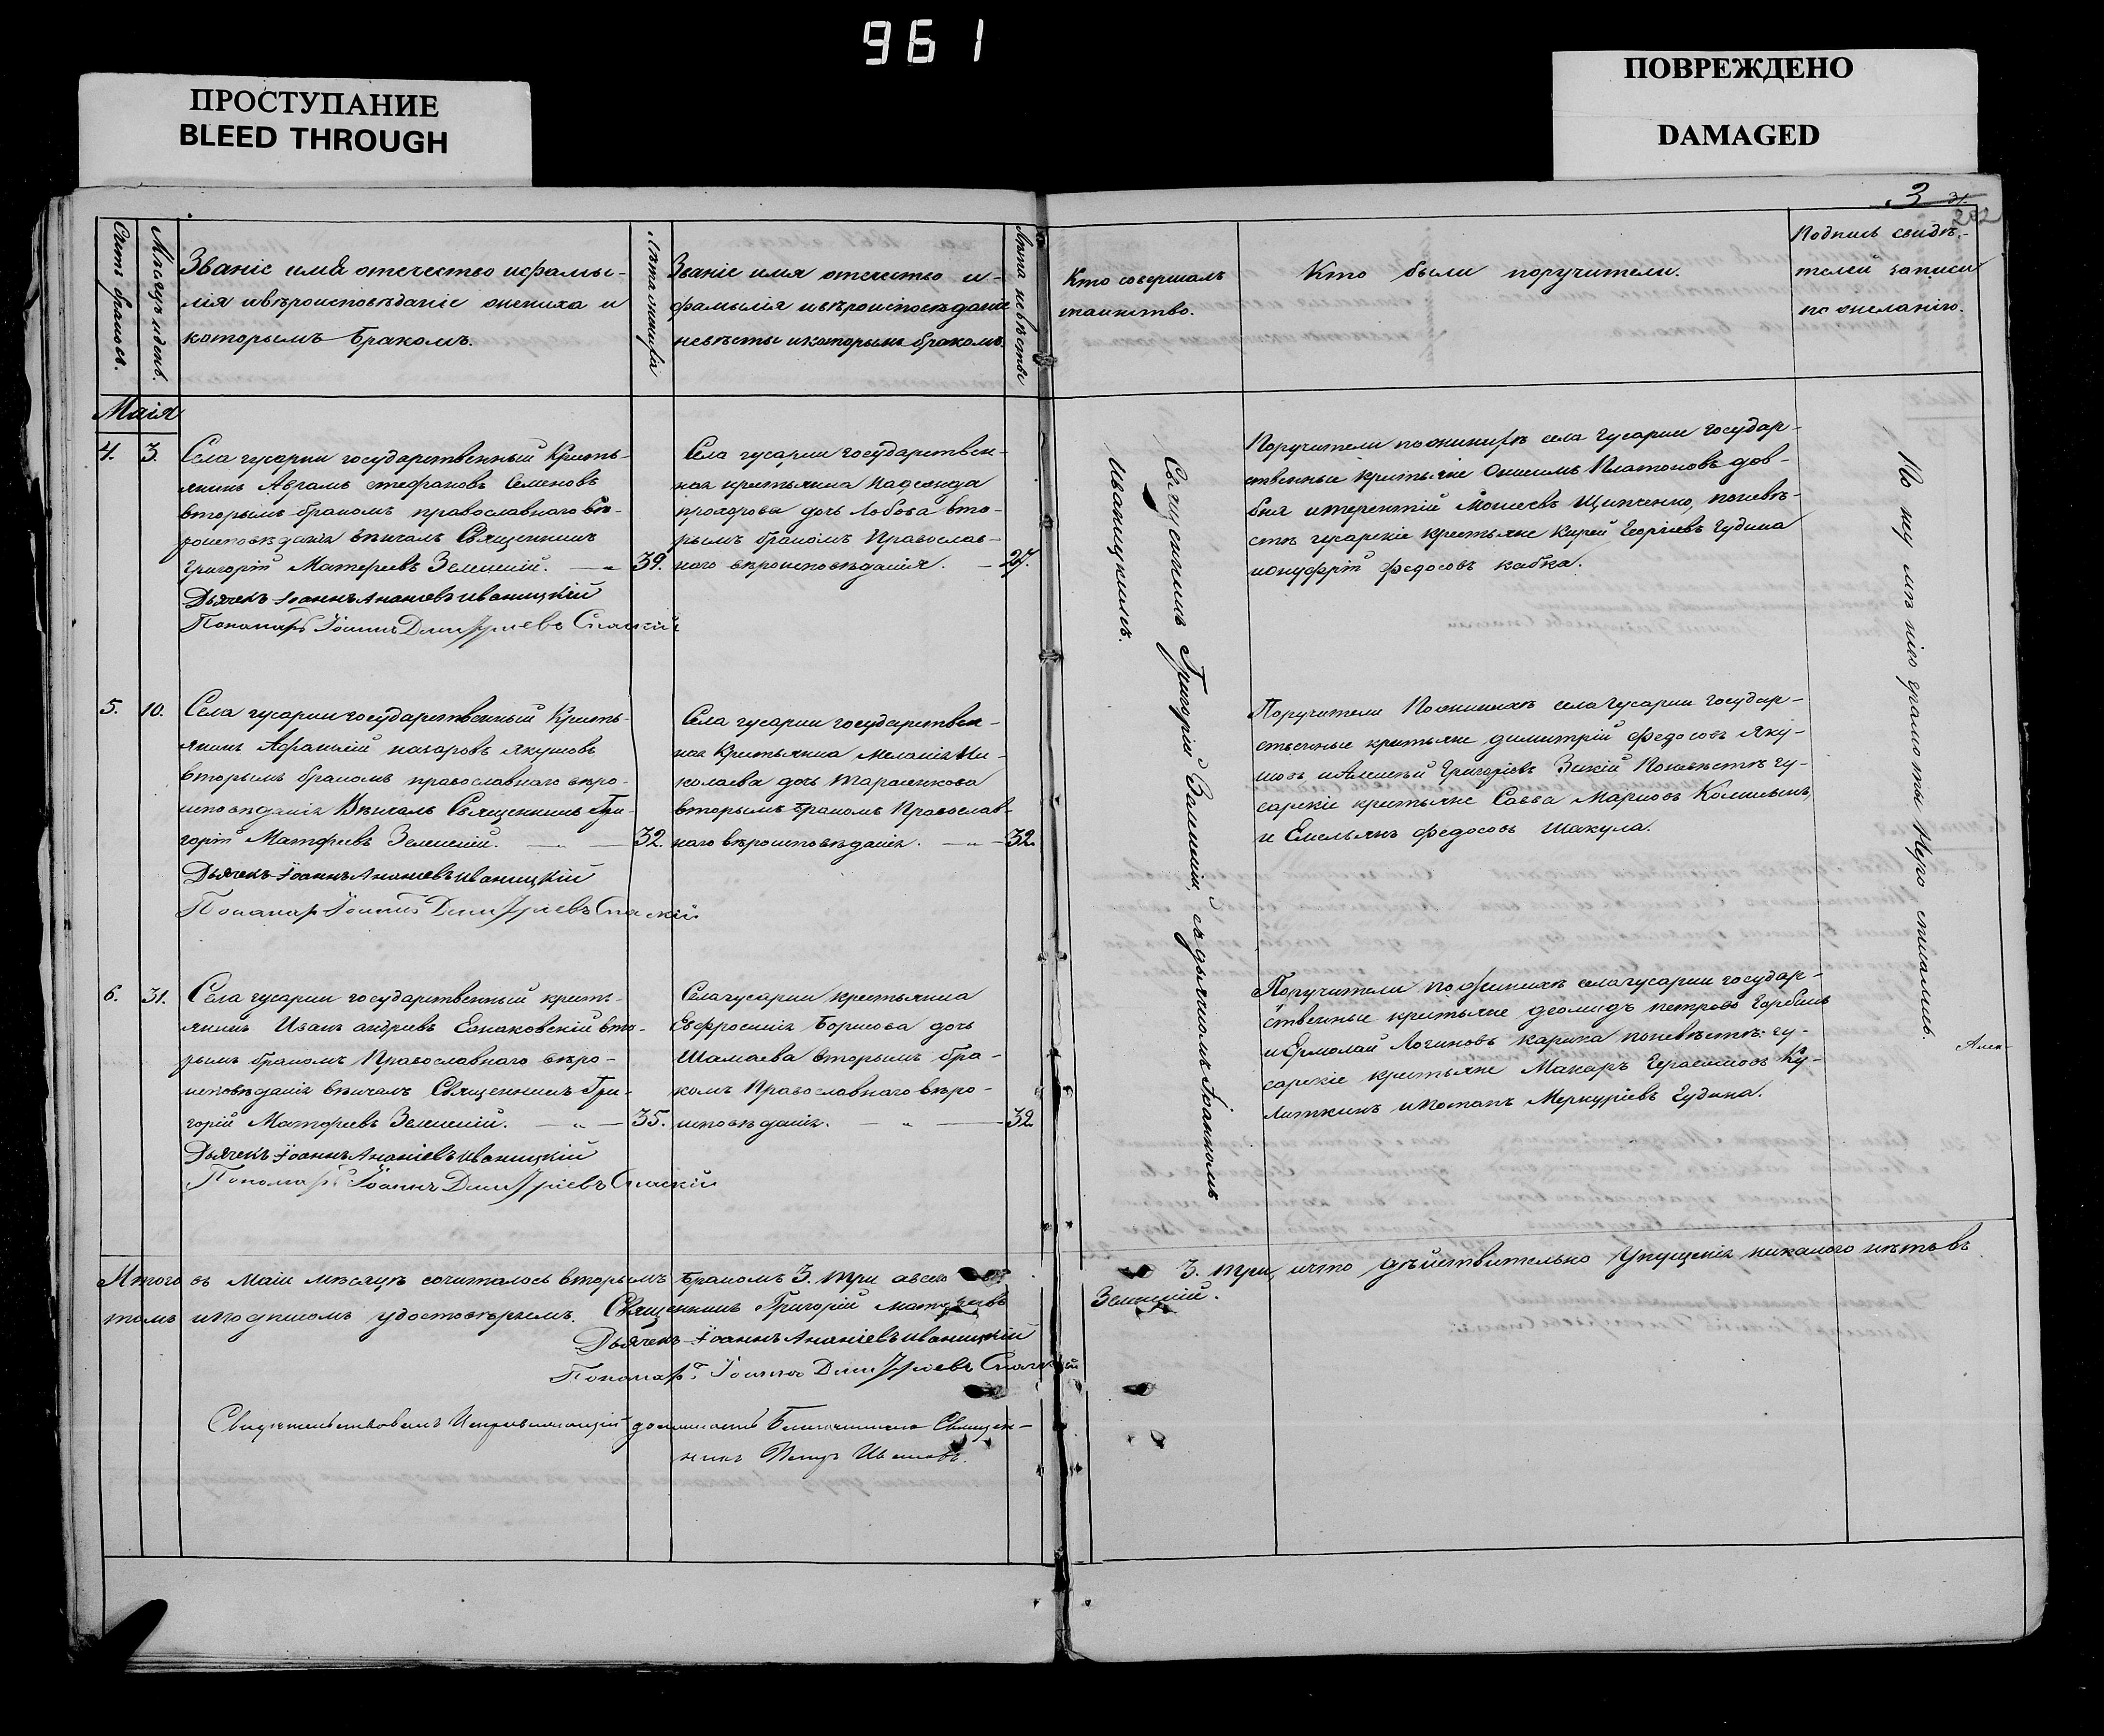 961
ПРОСТУПАНИЕ
BLEED THROUGH
ПОВРЕЖДЕНО
DAMAGED
3
202
Счетъ браковъ.
Мѣсяцъ и день.
Званіе имя отечество и фамы-
лія и вѣроисповѣданіе жениха и
которымъ бракомъ.
Лѣта жениха
Званіе имя отечество и
фамылія и вѣроисповѣданіе
невѣсты и которымъ бракомъ.
Лѣта невѣсты
Кто совершалъ
таинство.
Кто были поручители.
Подпись свидѣ-
телей записи
по желанію.
Маія
4. 3.
Села гусарки государственный Кресть-
янинъ Аврамъ стефановъ Семеновъ
вторымъ бракомъ православнаго вѣ-
роисповѣданія вѣнчалъ Священникъ
Григорій Матфеевъ Зеленскій. — 39.
Дьячекъ Іоаннъ Ананіевъ иваницкій
Пономарь Іоаннъ Димитріевъ Спаскій
Села гусарки государствен-
ная крестьянка
прохорова дочь Лобова вто-
рымъ бракомъ Православ-
наго вѣроисповѣданія. — 27.
Священникъ Григорій Зеленскій, съ дьячкомъ Іоанномъ
иваницкимъ.
Поручители по женихѣ села гусарки государ-
ственные крестьяне Онисимъ Платоновъ дов-
бня и терентій Моисеевъ Щипченко, по невѣ-
стѣ гусарскіе крестьяне Карпъ Георгіевъ Гудина
и онуфрій федосовъ кабка.
По не умѣнію грамоты Рукоприкладства не учинили.
5. 10.
Села гусарки государственный Кресть-
янинъ Афанасій назаровъ якушовъ
вторымъ бракомъ православнаго вѣро-
исповѣданія Вѣнчалъ Священникъ Гри-
горій Матфеевъ Зеленскій. — 32.
Дьячекъ Іоаннъ Ананіевъ иваницкій
Пономарь Іоаннъ Димитріевъ Спаскій
Села гусарки государствен-
ная Крестьянка Меланія Ни-
колаева дочь Тарасенкова
вторымъ бракомъ Православ-
наго вѣроисповѣданія. — 32.
Поручители По женихѣ села Гусарки государ-
ственные крестьяне димитрій федосовъ Яку-
шовъ, и Алексѣй Григоріевъ Зинкій По невѣстѣ гу-
сарскіе крестьяне Савва Марковъ
и Емельянъ федосовъ Шакула.
6. 31.
Села гусарки государственный кресть-
янинъ Иванъ андреевъ вто-
рымъ бракомъ Православнаго вѣро-
исповѣданія вѣнчалъ Священникъ Гри-
горій Матфеевъ Зеленскій. — 35.
Дьячекъ Іоаннъ Ананіевъ иваницкій
Пономарь Іоаннъ Димитріевъ Спаскій
Села гусарки крестьянка
Евфросинія Борисова дочь
Шамаева вторымъ бра-
комъ Православнаго вѣро-
исповѣданія. — 32.
Поручители по женихѣ села гусарки государ-
ственные крестьяне деомидъ петровъ Горбань
и Ермолай Логиновъ карпка по невѣстѣ гу-
сарскіе крестьяне Макаръ Герасимовъ Ку-
латкинъ и потапъ Меркуріевъ Гудина.
Алек-
Итого въ Маіи мѣсяцѣ сочиталось вторымъ бракомъ 3. три а всего 3. три, и что дѣйствительно упущенія никакого нѣтъ въ
томъ и подписомъ удостовѣряемъ. Священникъ Григорій матфеевъ Зеленскій.
Дьячекъ Іоаннъ Ананіевъ иваницкій
Пономарь Іоаннъ Димитріевъ Спаскій
Свидѣтельствовалъ Исправляющій должность Благочиннаго Священ-
никъ Петръ Ивановъ.